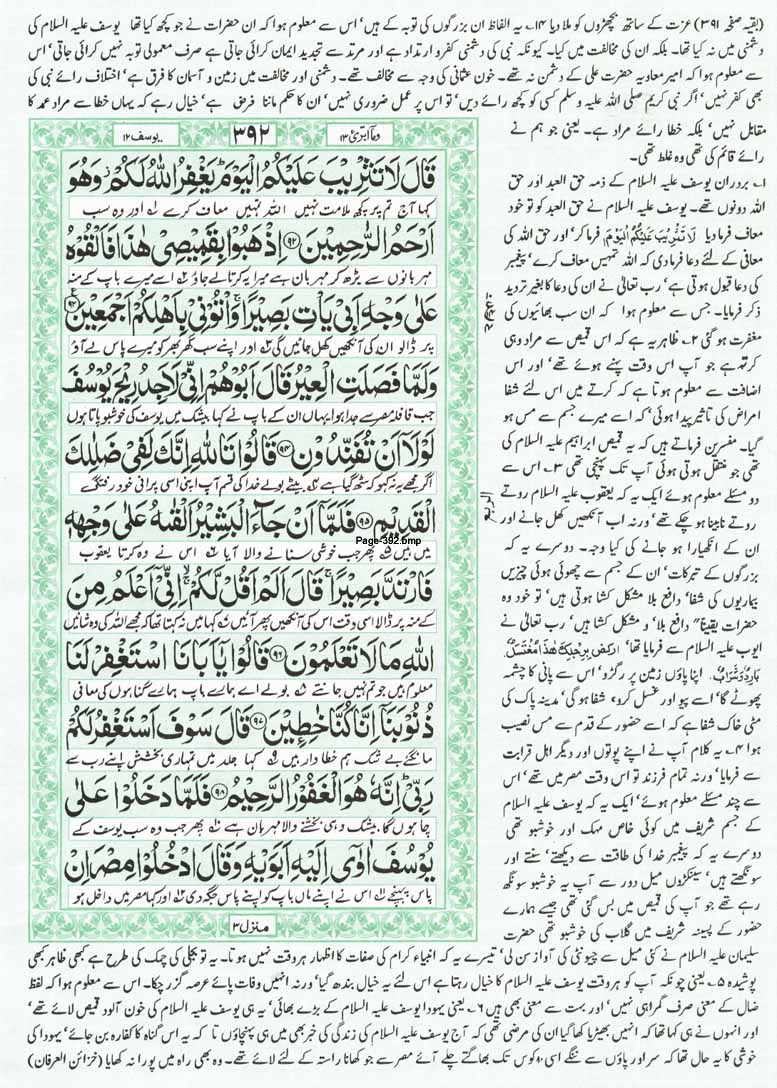 (بقیہ صفحہ ۳۹۱) عزت کے ساتھ بچھڑوں کو ملا دیا ۱۴۔ یہ الفاظ ان بزرگوں کی توبہ کے ہیں' اس سے معلوم ہوا کہ ان حضرات نے جو کچھ کیا تھا یوسف علیہ السلام کی
دشمنی میں نہ کیا تھا۔ بلکہ ان کی مخالفت میں کیا۔ کیونکہ نبی کی دشمنی کفر و ارتداد ہے اور مرتد سے تجدید ایمان کرائی جاتی ہے صرف معمولی توبہ نہیں کرائی جاتی' اس
سے معلوم ہوا کہ امیر معاویہ حضرت علی کے دشمن نہ تھے۔ خون عثمانی کی وجہ سے مخالف تھے۔ دشمنی اور مخالفت میں زمین و آسمان کا فرق ہے' اختلاف رائے نبی کی
بھی کفر نہیں' اگر نبی کریم صلی اللہ علیہ وسلم کسی کو کچھ رائے دیں' تو اس پر عمل ضروری نہیں' ان کا حکم ماننا فرض ہے' خیال رہے کہ یہاں خطا سے مراد عمد کا
مقابل نہیں' بلکہ خطا رائے مراد ہے۔ یعنی جو ہم نے
رائے قائم کی تھی وہ غلط تھی۔
۱۔ بردران یوسف علیہ السلام کے ذمہ حق العبد اور حق
اللہ دونوں تھے۔ یوسف علیہ السلام نے حق العبد کو تو خود
معاف فرما دیا لَا تَثْرِیْبَ عَلَیْکُمُ الْیَوْمَ فرما کر' اور حق اللہ کی
معافی کے لئے دعا فرما دی کہ اللہ تمہیں معاف کرے' پیغمبر
کی دعا قبول ہوتی ہے' رب تعالیٰ نے ان کی دعا کا بغیر تردید
ذکر فرمایا۔ جس سے معلوم ہوا کہ ان سب بھائیوں کی
مغفرت ہو گئی ۲۔ ظاہر یہ ہے کہ اس قمیص سے مراد وہی
کرتہ ہے جو آپ اس وقت پہنے ہوئے تھے' اور اس
اضافت سے معلوم ہوتا ہے کہ کرتے میں اس لئے شفا
امراض کی تاثیر پیدا ہوئی' کہ اسے میرے جسم سے مس ہو
گیا۔ مفسرین فرماتے ہیں کہ یہ قمیص ابراہیم علیہ السلام کی
تھی جو منتقل ہوتی ہوئی آپ تک پہنچی تھی ۳۔ اس سے
دو مسئلے معلوم ہوئے ایک یہ کہ یعقوب علیہ السلام روتے
روتے نابینا ہو چکے تھے' ورنہ اب آنکھیں کھل جانے اور
ان کے انکھیارا ہو جانے کی کیا وجہ۔ دوسرے یہ کہ
بزرگوں کے تبرکات' ان کے جسم سے چھوئی ہوئی چیزیں
بیماریوں کی شفا' دافع بلا مشکل کشا ہوتی ہیں' تو خود وہ
حضرات یقیناً" دافع بلا و مشکل کشا ہیں' رب تعالیٰ نے
ایوب علیہ السلام سے فرمایا تھا' اُرْکُضْ بِرِجْلِکَ ھٰذَا مُغْتَسَلٌ
بَارِدٌ وَّشَرَابٌ اپنا پاؤں زمین پر رگڑو' اس سے پانی کا چشمہ
پھوٹے گا' اسے پیو اور غسل کرو' شفا ہو گی' مدینہ پاک کی
مٹی خاک شفا ہے کہ اسے حضور کے قدم سے مس نصیب
ہوا ۴۔ یہ کلام آپ نے اپنے پوتوں اور دیگر اہل قرابت
سے فرمایا' ورنہ تمام فرزند تو اس وقت مصر میں تھے' اس
سے چند مسئلے معلوم ہوئے' ایک یہ کہ یوسف علیہ السلام
کے جسم شریف میں کوئی خاص مہک اور خوشبو تھی
دوسرے یہ کہ پیغمبر خدا کی طاقت سے دیکھتے' سنتے اور
سونگھتے ہیں' سینکڑوں میل دور سے آپ یہ خوشبو سونگھ
رہے تھے جو آپ کی قمیص میں بس گئی تھی جیسے ہمارے
حضور کے پسینہ شریف میں گلاب کی خوشبو تھی حضرت
وما ابرئ ۱۳
۳۹۲
یوسف ۱۲
قَالَ لَا تَثْرِیْبَ عَلَیْکُمُ الْیَوْمَ یَغْفِرُ اللّٰہُ لَکُمْ وَھُوَ
کہا آج تم پر کچھ ملامت نہیں اللہ تمہیں معاف کرے اور وہ سب
اَرْحَمُ الرّٰحِمِیْنَ ۹۲ اِذْھَبُوْا بِقَمِیْصِیْ ھٰذَا فَاَلْقُوْہُ
مہربانوں سے بڑھ کر مہربان ہے میرا یہ کرتا لے جاؤ اسے میرے باپ کے منہ
عَلٰی وَجْہِ اَبِیْ یَاْتِ بَصِیْرًا وَاْتُوْنِیْ بِاَھْلِکُمْ اَجْمَعِیْنَ ۹۳
پر ڈالو ان کی آنکھیں کھل جائیں گی اور اپنے سب گھر بھر کو میرے پاس لے آؤ
وَلَمَّا فَصَلَتِ الْعِیْرُ قَالَ اَبُوْھُمْ اِنِّیْ لَاَجِدُ رِیْحَ یُوْسُفَ
جب قافلہ مصر سے جدا ہوا یہاں ان کے باپ نے کہا بیشک میں یوسف کی خوشبو پاتا ہوں
لَوْلَا اَنْ تُفَنِّدُوْنِ ۹۴ قَالُوْا تَاللّٰہِ اِنَّکَ لَفِیْ ضَلٰلِکَ
اگر مجھے یہ نہ کہو کہ سٹھ گیا ہے بیٹے بولے خدا کی قسم آپ اپنی اسی پرانی خود رفتگی
الْقَدِیْمِ ۹۵ فَلَمَّا اَنْ جَاءَ الْبَشِیْرُ اَلْقٰہُ عَلٰی وَجْھِہٖ
Page-392.bmp
میں ہیں پھر جب خوشی سنانے والا آیا اس نے وہ کرتا یعقوب
فَارْتَدَّ بَصِیْرًا قَالَ اَلَمْ اَقُلْ لَّکُمْ اِنِّیْ اَعْلَمُ مِنَ
کے منہ پر ڈالا اسی وقت اس کی آنکھیں پھر آئیں کہا میں نہ کہتا تھا کہ مجھے اللہ کی وہ شانیں
اللّٰہِ مَا لَا تَعْلَمُوْنَ ۹۶ قَالُوْا یٰاَبَانَا اسْتَغْفِرْ لَنَا
معلوم ہیں جو تم نہیں جانتے بولے اے ہمارے باپ ہمارے گناہوں کی معافی
ذُنُوْبَنَا اِنَّا کُنَّا خٰطِئِیْنَ ۹۷ قَالَ سَوْفَ اَسْتَغْفِرُ لَکُمْ
مانگئے بے شک ہم خطاوار ہیں کہا جلد میں تمہاری بخشش اپنے رب سے
رَبِّیْ اِنَّہٗ ھُوَ الْغَفُوْرُ الرَّحِیْمُ ۹۸ فَلَمَّا دَخَلُوْا عَلٰی
چاہوں گا بیشک وہی بخشنے والا مہربان ہے پھر جب وہ سب یوسف کے
یُوْسُفَ اٰوٰی اِلَیْہِ اَبَوَیْہِ وَقَالَ ادْخُلُوْا مِصْرَ اِنْ
پاس پہنچے اس نے اپنے ماں باپ کو اپنے پاس جگہ دی اور کہا مصر میں داخل ہو
منزل ۳
سلیمان علیہ السلام نے کئی میل سے چیونٹی کی آواز سن لی' تیسرے یہ کہ انبیاء کرام کی صفات کا اظہار ہر وقت نہیں ہوتا۔ یہ تو بجلی کی چمک کی طرح ہے کبھی ظاہر کبھی
پوشیدہ ۵۔ یعنی چونکہ آپ کو ہر وقت یوسف علیہ السلام کا خیال رہتا ہے اس لئے یہ خیال بندھ گیا' ورنہ انہیں وفات پائے عرصہ گزر چکا۔ اس سے معلوم ہوا کہ لفظ
ضال کے معنی صرف گمراہی نہیں' اور بہت سے معنی بھی ہیں ۶۔ یعنی یہودا یوسف علیہ السلام کے بڑے بھائی' یہ ہی یوسف علیہ السلام کی خون آلود قمیص لائے تھے'
اور انہوں نے ہی کہا تھا کہ انہیں بھیڑیا کھا گیا ان کی مرضی تھی کہ آج یوسف علیہ السلام کی زندگی کی خبر بھی میں ہی پہنچاؤں تا کہ یہ اس گناہ کا کفارہ بن جائے' یہودا کی
خوشی کا یہ حال تھا کہ سر اور پاؤں سے ننگے اسی ۸۰ کوس تک بھاگتے چلے آئے مصر سے جو کھانا راستہ کے لئے لائے تھے۔ وہ بھی راہ میں پورا نہ کھایا (خزائن العرفان)